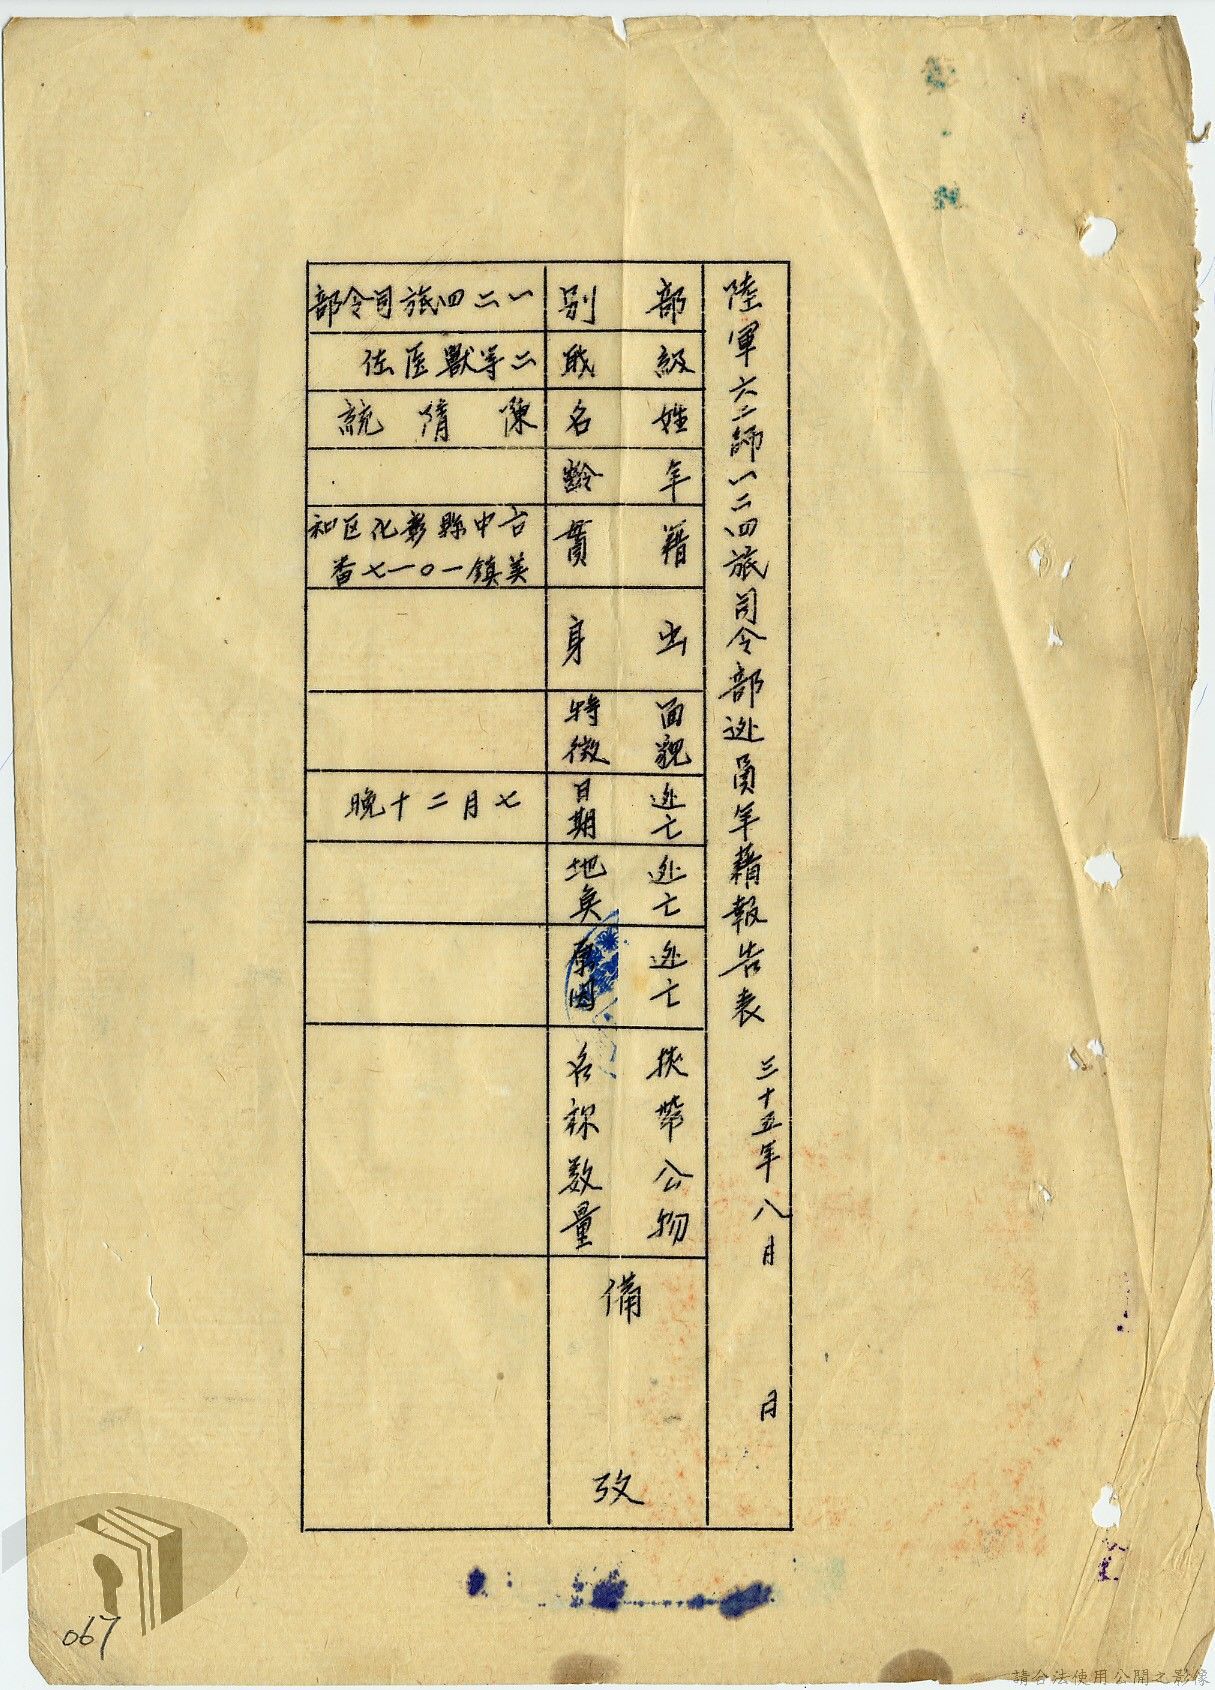 陸軍六二師一二四旅司令部逃員年籍報告表 三十五年八月 日
部別
一二四旅司令部
級職
二等獸医佐
姓名
陳隋統
年齡
籍貫
台中縣彰化区和
美鎮一〇一七番
出身
面貌
特徵
逃亡
日期
七月二十晚
逃亡
地奌
逃亡
原因
挾帶公物
名称数量
備攷
067
請合法使用公開之影像